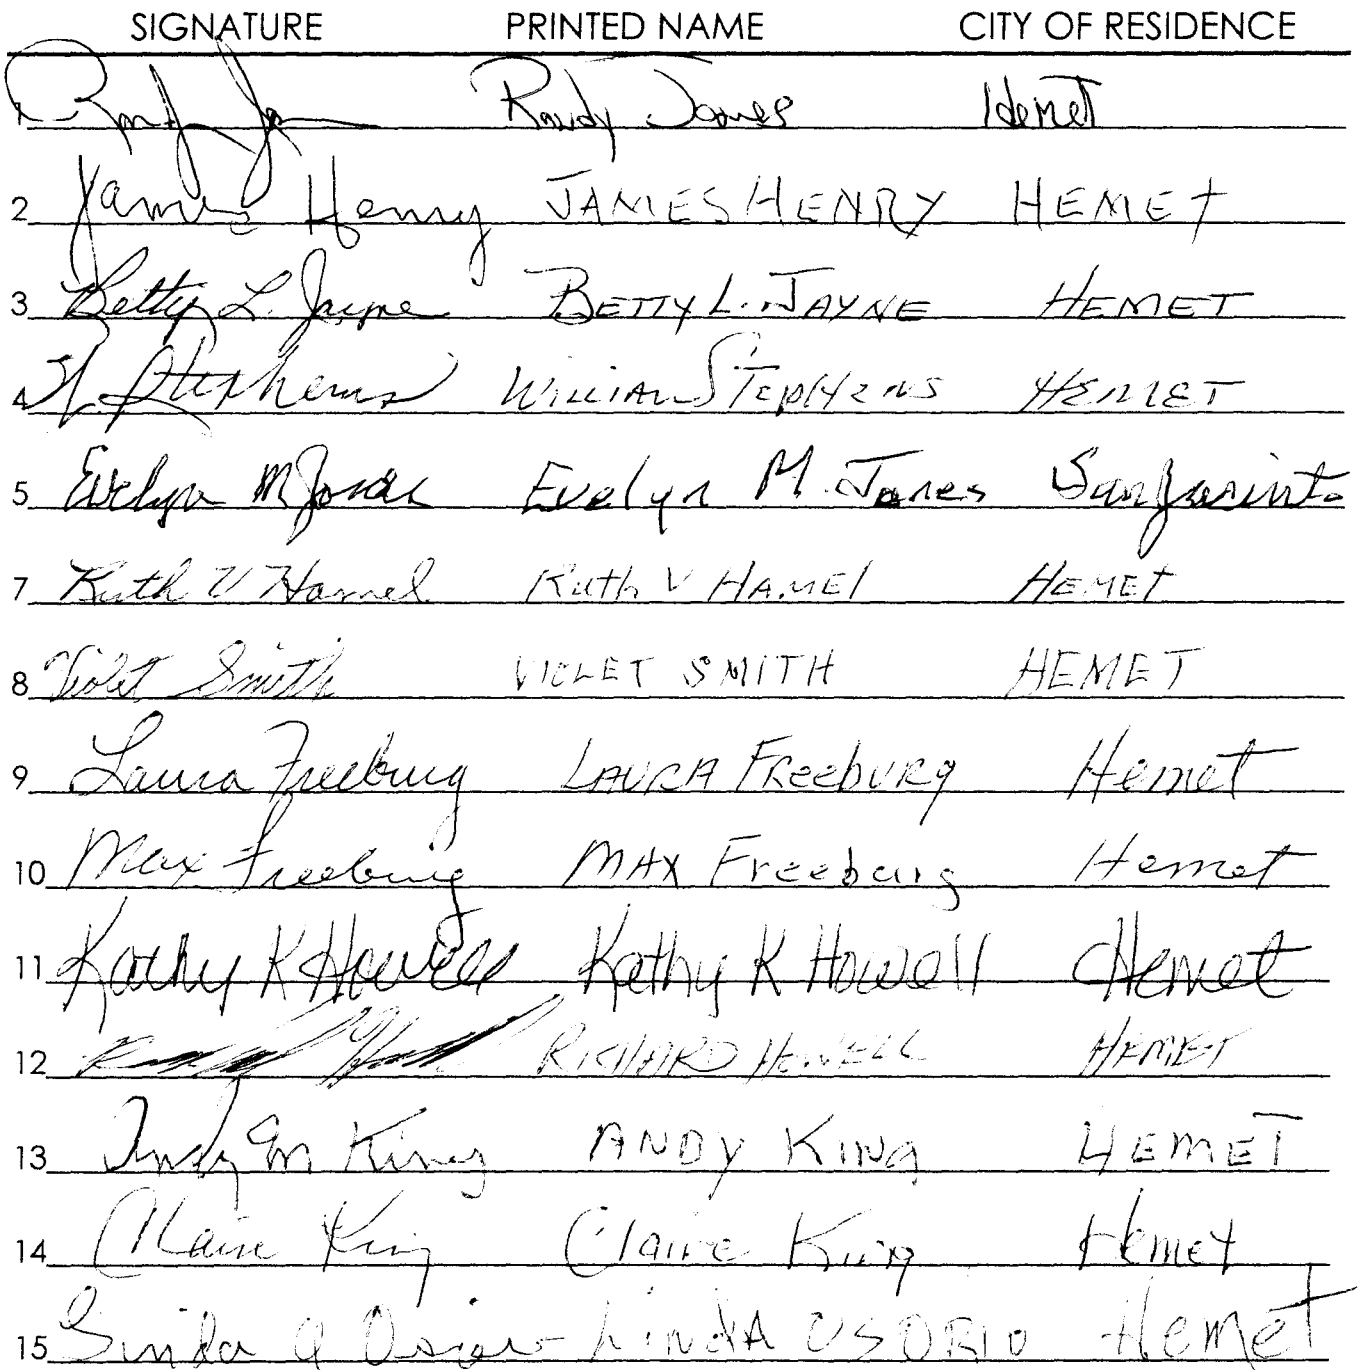 SIGNATURE PRINTED NAME CITY OF RESIDENCE
1 Randy Jones Hemet
2 James Henry JAMES HENRY HEMET
3 Betty L. Jayne BETTY L. JAYNE HEMET
4 W. Stephens WILLIAM STEPHENS HEMET
5 Evelyn M Jones Evelyn M. Jones San Jacinto
7 Ruth V Hamel Ruth V HAMEl HEMET
8 Violet Smith VIOLET SMITH HEMET
9 Laura Freeburg LAURA FReeburg Hemet
10 Max Freeburg MAX Freeburg Hemet
11 Kathy K Howell Kathy K Howell Hemet
12 RICHARD HOWELL HEMET
13 Andy M King ANDY KING HEMET
14 Claire King Claire King Hemet
15 Linda A Osorio LINdA OSORIO Hemet